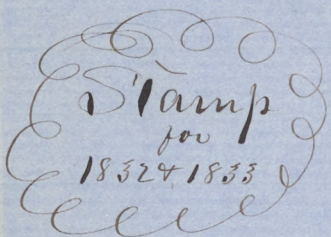 Stamp
for
1832 & 1833